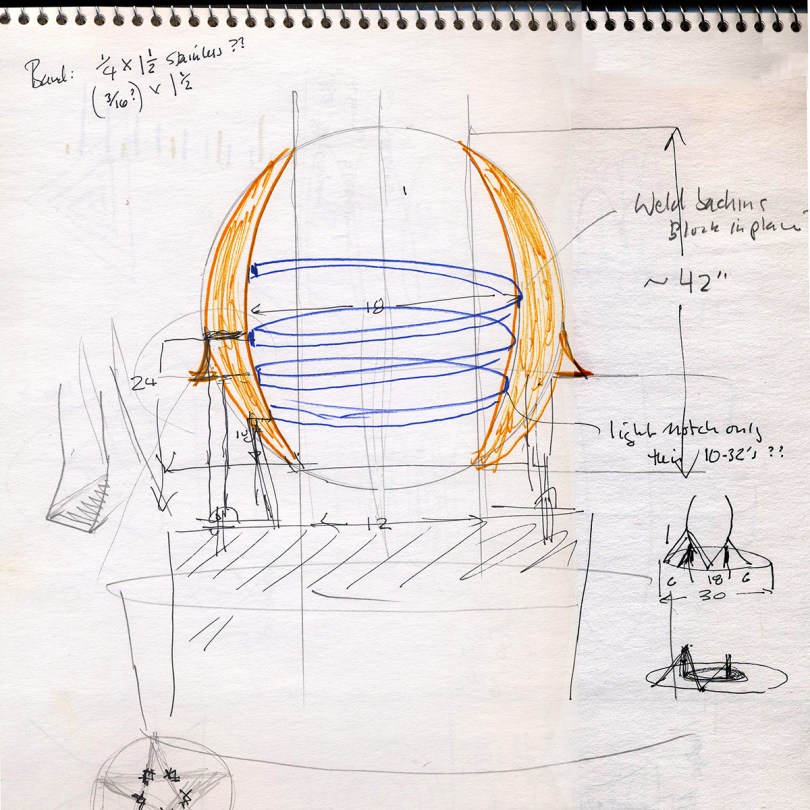 Band: 1/4 x 1 1/2 stainless ??
(3/16?) x 1 1/2
Weld backing
Block in place
~ 42"
18
24
light notch only
this 10-32's ??
12
6 18 6
30